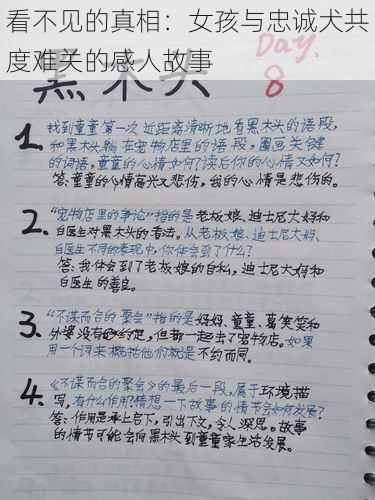 看不见的真相：女孩与忠诚犬共
度难关的感人故事
黑木头
Day.
8
1. 找到童童第一次近距离清晰地看黑木头的语段,
和黑木头躺在宠物店里的语段,圈画关键
的词语,童童的心情如何?读后你的心情又如何?
答:童童的心情高兴又悲伤,我的心情是悲伤的。
2. “宠物店里的争论”指的是老板娘、迪士尼大婶和
白医生对黑木头的看法。从老板娘、迪士尼大婶、
白医生不同的表现中,你体会到了什么?
答:我体会到了老板娘的自私,迪士尼大婶和
白医生的善良。
3. “不谋而合的聚会”指的是妈妈、童童、葛笑笑和
外婆没有约定,但都一起去了宠物店,如果
用一个词来概括他们就是不约而同。
4. 《不谋而合的聚会》的最后一段,属于环境描
写,有什么作用?猜想一下故事的情节会如何发展?
答:作用是承上启下,引出下文,令人深思。故事
的情节可能会向黑木头到童童家生活发展。